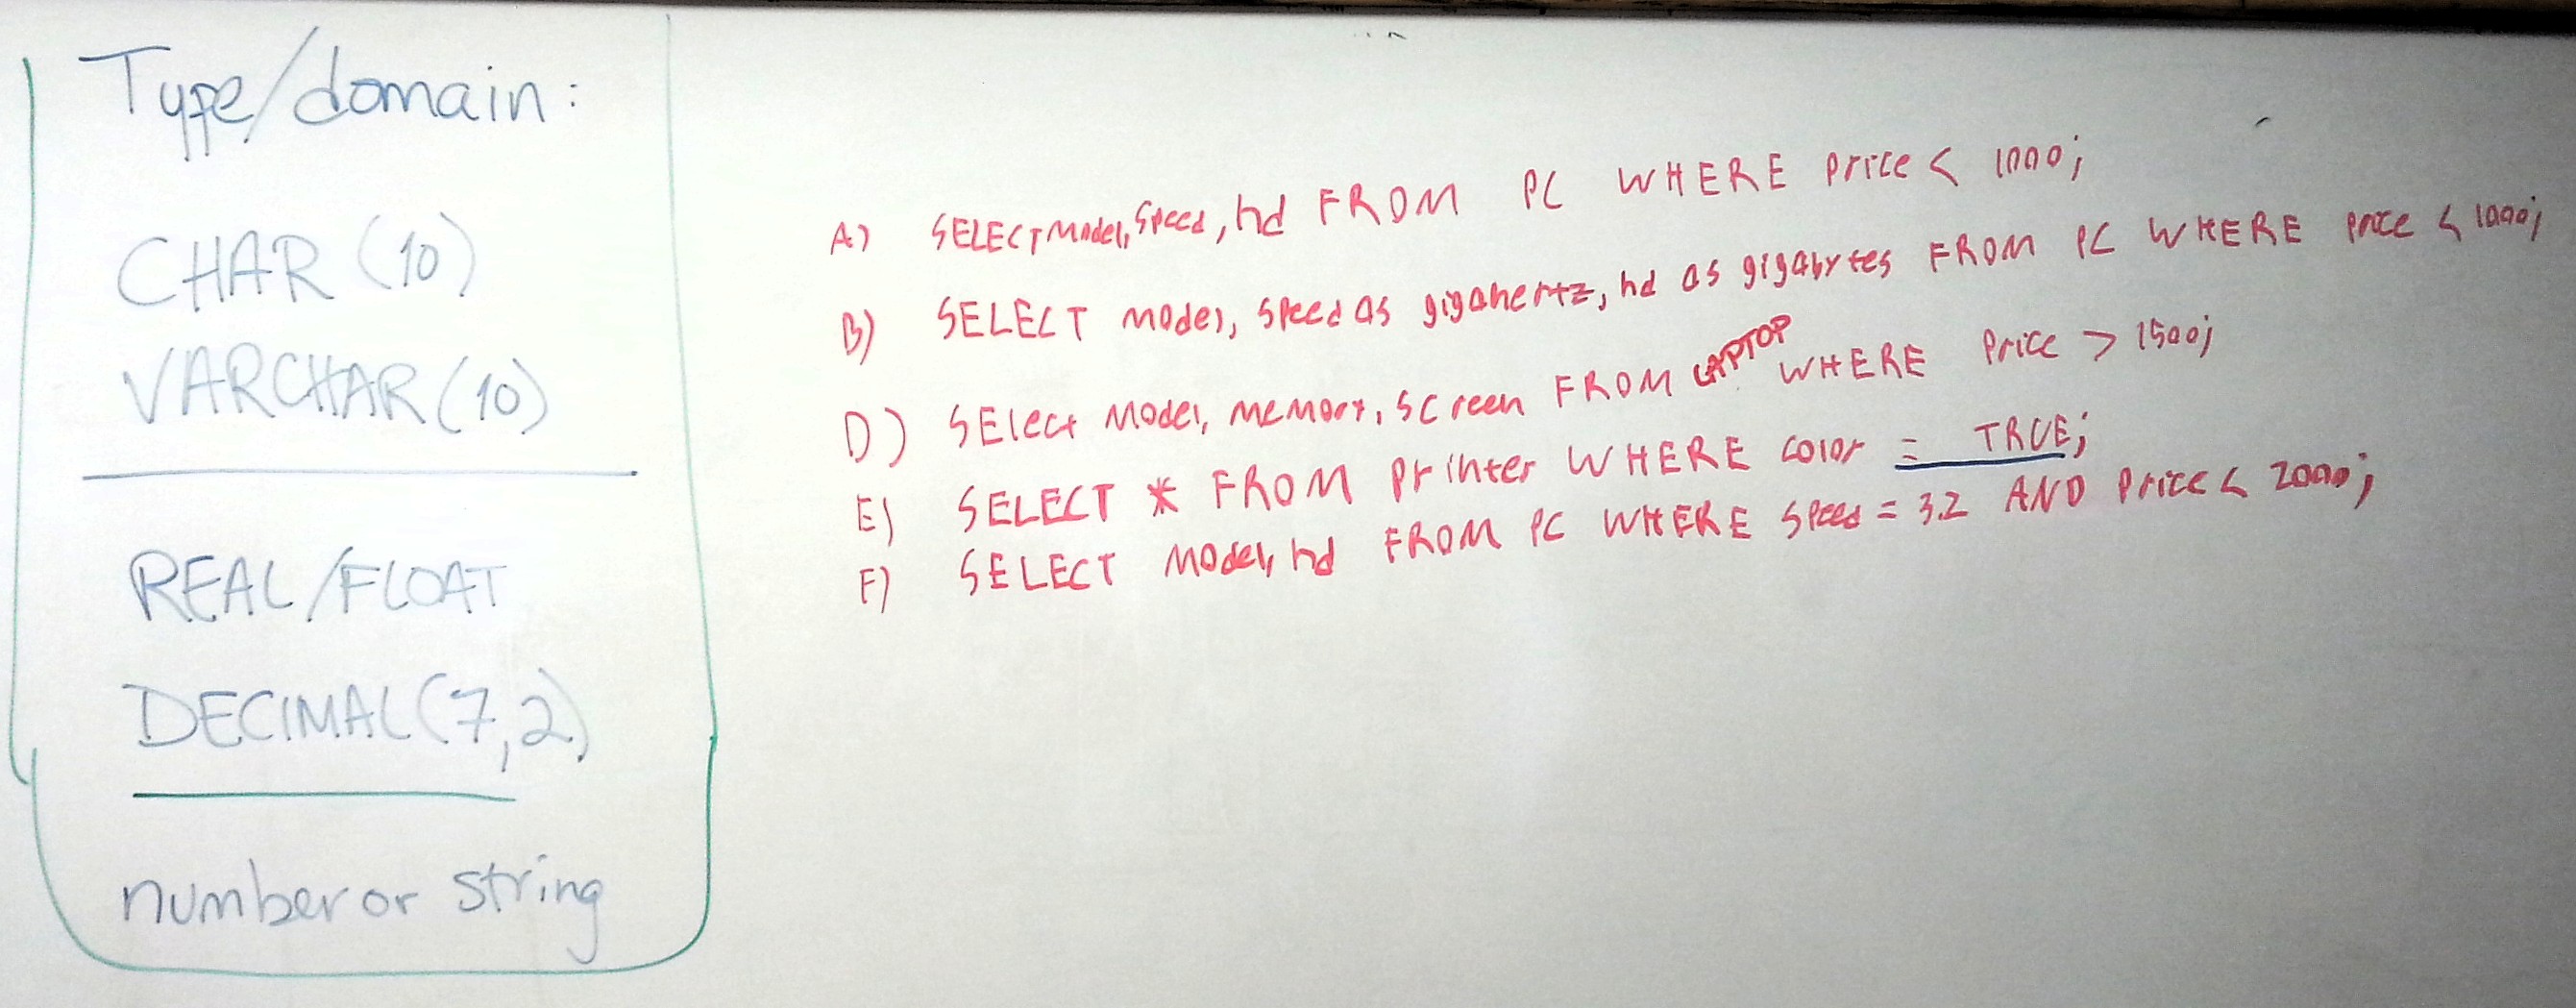 Type/domain:
CHAR (10)
VARCHAR (10)
REAL/FLOAT
DECIMAL(7,2)
number or string
A) SELECT Model, speed, hd FROM PC WHERE price < 1000;
B) SELECT model, speed as gigahertz, hd as gigabytes FROM PC WHERE price < 1000;
D) SElect Model, memory, screen FROM LAPTOP WHERE Price > 1500;
E) SELECT * FROM printer WHERE color = TRUE;
F) SELECT Model, hd FROM PC WHERE speed = 3.2 AND Price < 2000;